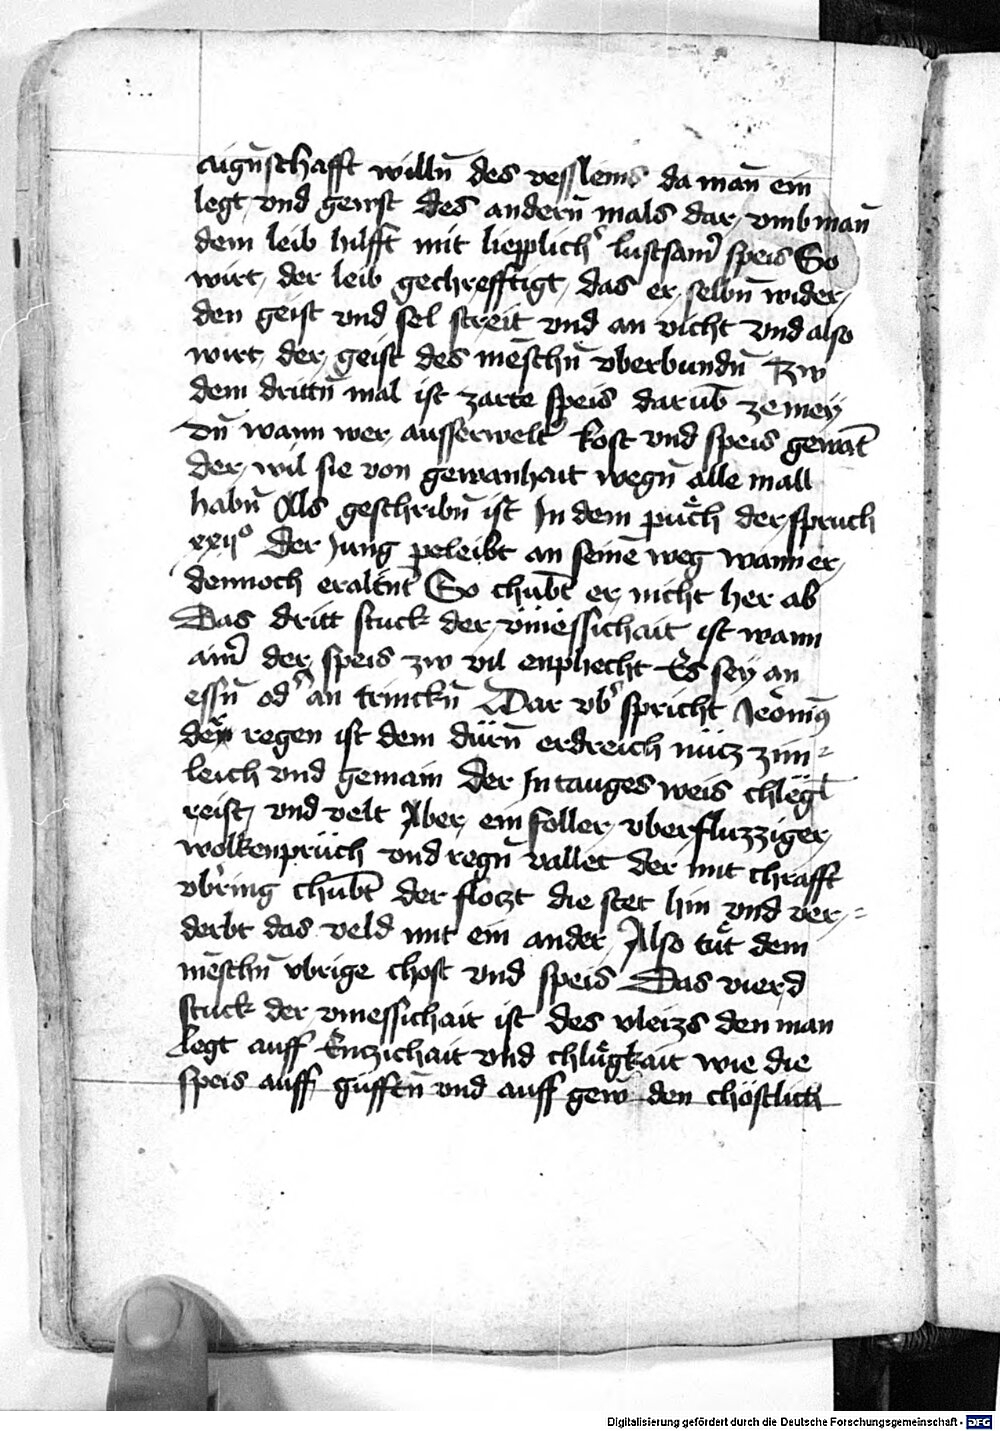 aigñschafft willñ des vesslems da man̄ ein
legt vnd gewst des anderñ mals dar vmb man̄
dem leib hilfft mit liepplich lustsam̄ speis So
wirt der leib gechrefftigt das er selbñ wider
den geist vnd sel streit vnd an vicht vnd also
wirt der geist des mēschñ vberbundñ Zw
dem drittñ mal ist zarte speis darub̄ ze mey
dñ wann wer ausserwelt kost vnd speis gewāt
der wil sie von gewanhait wegñ alle mall
habñ Als geschribñ ist In dem puͤch der spruch
xxijº Der Jung peleibt an seinē weg wann er
dennoch eraltnt So chub̄t er nicht her ab
Das dritt stuck der vn̄iessichait ist wann
aim̄ der speis zw vil enphecht Es sey an
essñ od an trinckñ Dar vb spricht Jeronim9
der regen ist dem dürñ erdreich nücz zim=
leich vnd gemain der In tauges weis chlegt
reist vnd velt Aber ein foller vberfluzziger
wolkenprüch vnd regñ vallet der mit chrafft
vbring chub̄t der floczt die stet hin vnd ver=
derbt das veld mit ein ander Also tuͤt dem
mēschñ vbrige chost vnd speis Das vierd
stuck der vmessichait ist des vleizs den man
legt auff Enczichait vnd chluͤgkait wie die
speis auff güffen̄ vnd auff gew den chöstlich
Digitalisierung gefördert durch die Deutsche Forschungsgemeinschaft - DFG